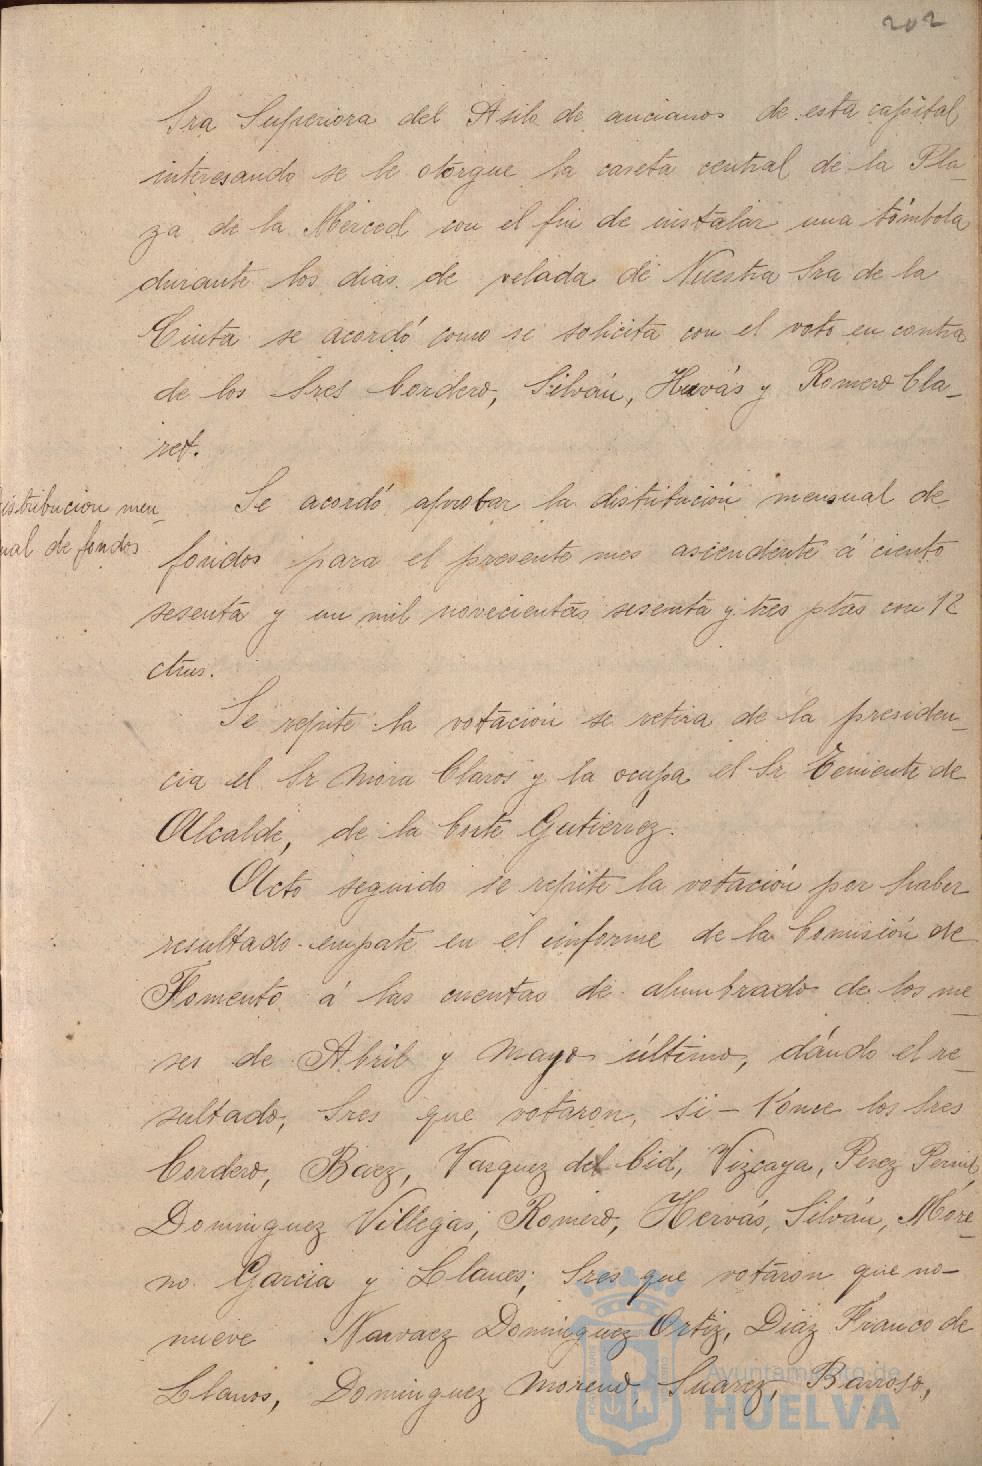 202
Sra Superiora del Asilo de ancianos de esta capital
interesando se le otorgue la caseta central de la Pla-
za de la Merced con el fin de instalar una tómbola
durante los dias de velada de Nuestra Sra de la
Cinta se acordó como se solicita con el voto en contra
de los Sres Cordero, Silván, Hervás y Romero Cla-
ret.
distribucion men-
sual de fondos
Se acordó aprobar la distribución mensual de
fondos para el presente mes ascendente á ciento
sesenta y un mil novecientas sesenta y tres ptas con 12
ctms.
Se repite la votación se retira de la presiden-
cia el Sr Mora Claros y la ocupa el Sr Teniente de
Alcalde, de la Corte Gutierrez.
Acto seguido se repite la votación por haber
resultado empate en el informe de la Comisión de
Fomento á las cuentas de alumbrado de los me-
ses de Abril y Mayo último, dándo el re-
sultado, Sres que votaron, si - Once los Sres
Cordero, Baez, Vazquez del Cid, Vizcaya, Perez
Dominguez Villegas, Romero, Hervás, Silván, More-
no Garcia y Llanes; Sres que votaron que no-
nueve Narvaez Dominguez Ortiz, Diaz Franco de
Llanos, Dominguez Moreno, Suarez, Barroso,
Ayuntamiento de
HUELVA